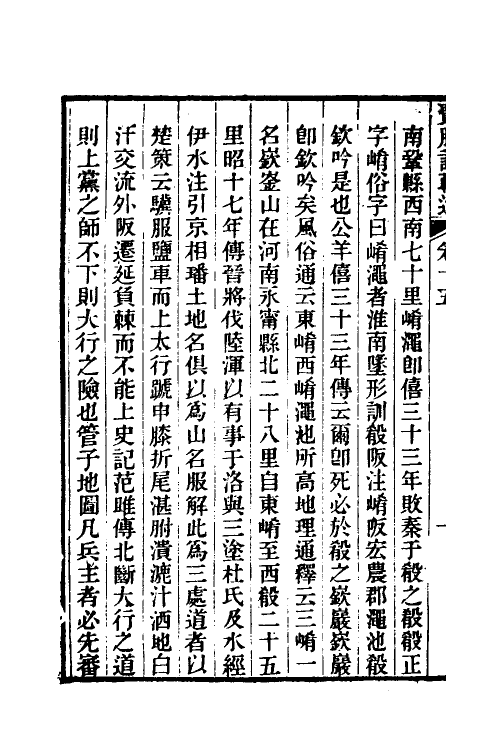 南鞏縣西南七十里崤澠卽僖三十三年敗秦于殽之殽殽正
字崤俗字曰崤澠者淮南墬形訓殽阪注崤阪宏農郡澠池殽
欽吟是也公羊僖三十三年傳云爾卽死必於殽之嶔巖嶔巖
卽欽吟矣風俗通云東崤西崤澠池所高地理通釋云三崤一
名嶔崟山在河南永甯縣北二十八里自東崤至西殽二十五
里昭十七年傳晉將伐陸渾以有事于洛與三塗杜氏及水經
伊水注引京相璠土地名俱以爲山名服解此爲三處道者以
楚策云驥服鹽車而上太行蹏申膝折尾湛胕潰漉汁洒地白
汗交流外阪遷延負棘而不能上史記范雎傳北斷大行之道
則上黨之師不下則大行之險也管子地圖凡兵主者必先審